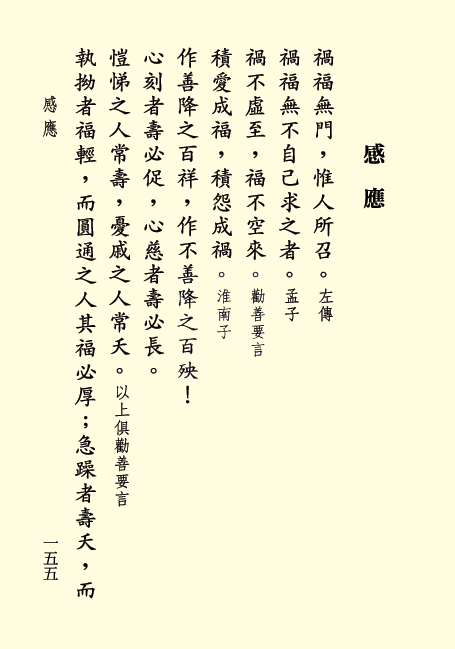 感應
禍福無門，惟人所召。左傳
禍福無不自己求之者。孟子
禍不虛至，福不空來。勸善要言
積愛成福，積怨成禍。淮南子
作善降之百祥，作不善降之百殃！
心刻者壽必促，心慈者壽必長。
愷悌之人常壽，憂戚之人常夭。以上俱勸善要言
執拗者福輕，而圓通之人其福必厚；急躁者壽夭，而
感應
一五五